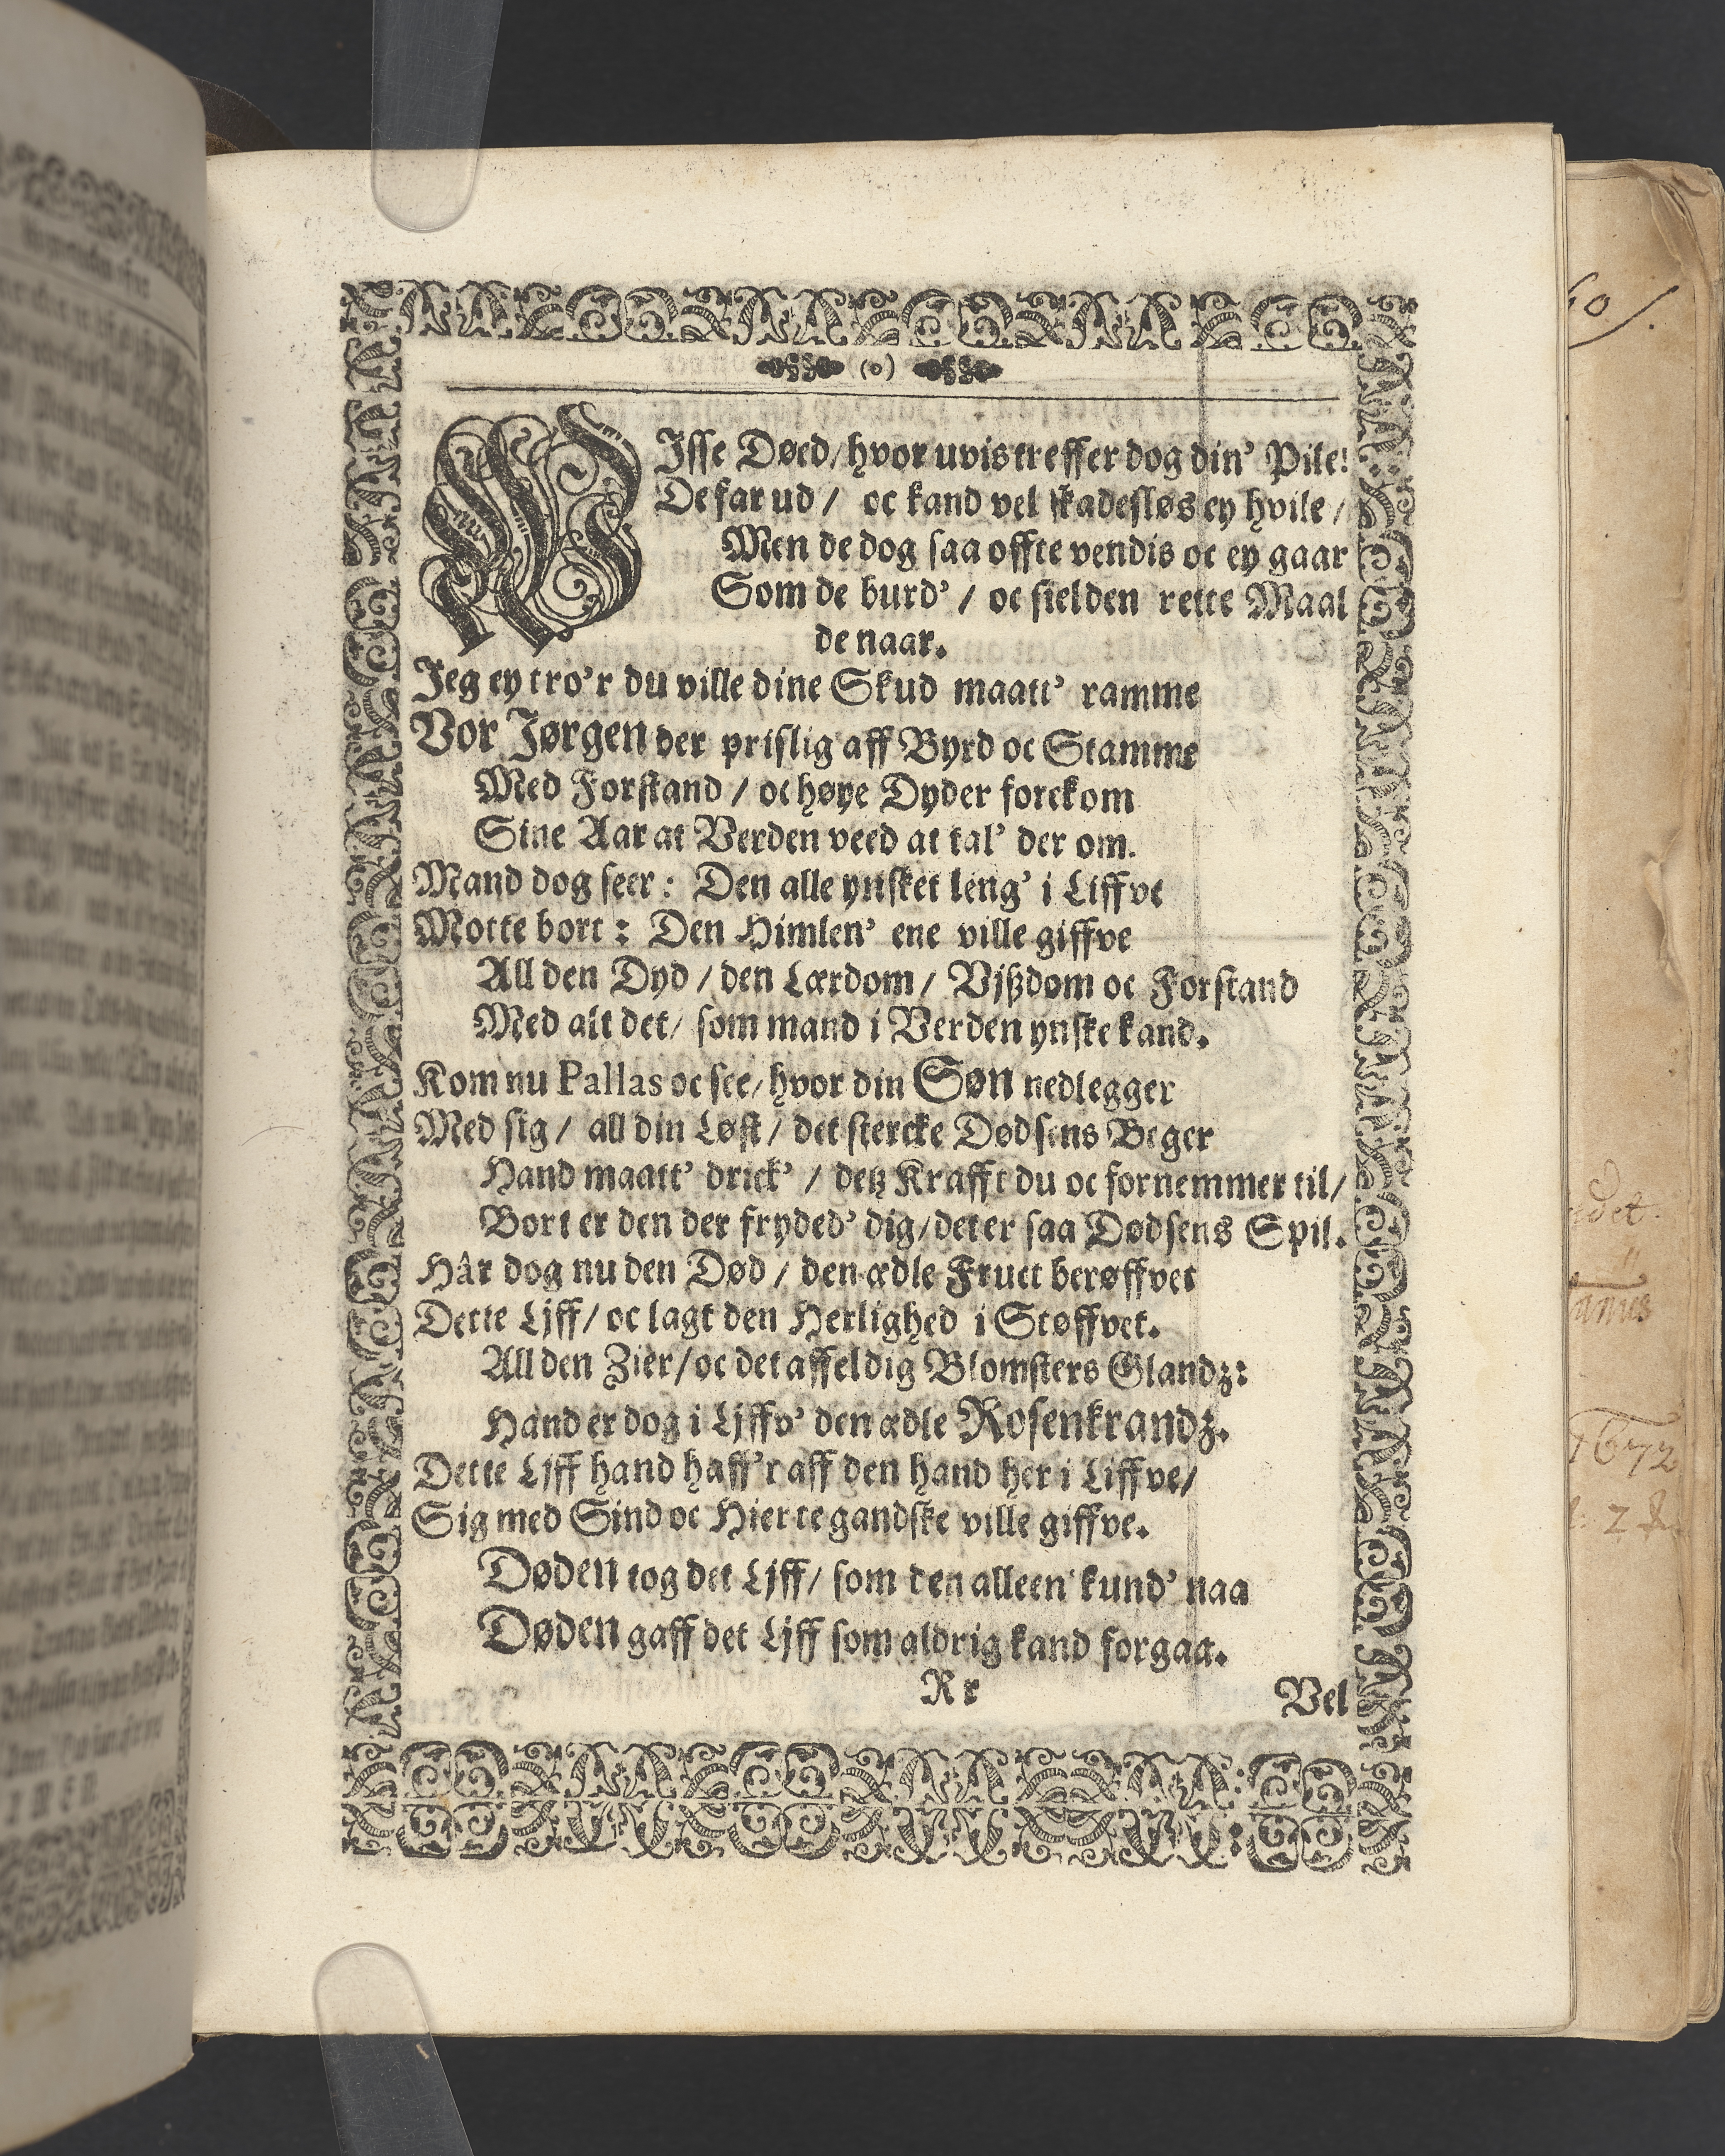 (o)
VIsse Døed/ hvor uvis treffer dog din' Pile!
De far ud / oc kand vel skadesløs ey hvile /
Men de dog saa offte vendis oc ey gaar
Som de burd' / oc sielden rette Maal
de naar.
Jeg ey tro'r du ville dine Skud maatt' ramme
Vor Jørgen der prislig aff Byrd oc Stamme
Med Forstand / oc høye Dyder forckom
Sine Aar at Verden veed at tal' der om.
Mand dog seer: Den alle ynsket leng' i Liffve
Motte bort: Den Himlen' ene ville giffve
All den Dyd / den Lærdom / Vjßdom oc Forstand
Med alt det/ som mand i Verden ynske kand.
Kom nu Pallas oc see/ hvor din Søn nedlegger
Med sig / all din Løst / det stercke Dødsens Beger
Hand maatt' drick' / detz Krafft du oc fornemmer til/
Bort er den der fryded' dig/ det er saa Dødsens Spil.
Hâr dog nu den Død / den ædle Fruct berøffvet
Dette Ljff/ oc lagt den Herlighed i Støffvet.
All den Zier/ oc det affeldig Blomsters Glandz:
Hand er dog i Ljffv' den ædle Rosenkrandz.
Dette Ljff hand haff'r aff den hand her i Liffve/
Sig med Sind oc Hierte gandske ville giffve.
Døden tog det Ljff/ som den alleen' kund' naa
Døden gaff det Ljff som aldrig kand forgaa.
Rr
Vel
1672